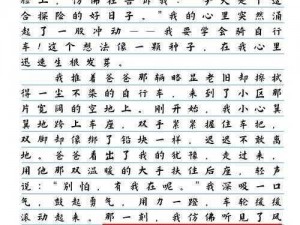 脸上，仿佛在说："今天是个适
合探险的好日子。"我的心里突然涌
起了一股冲动——我要学会骑自行
车！这个想法像一颗种子，在我心里
迅速生根发芽。
我推着爸爸那辆略显老旧却擦拭
得一尘不染的自行车，来到了小区那
片宽阔的空地上。刚开始，我小心翼
翼地跨上车座，双手紧紧握住车把，
双脚却像绑了铅块一样，迟迟不敢离
地。爸爸看出了我的犹豫，走过来，
用他那双温暖的大手扶住后座，轻声
说："别怕，有我在呢。"我深吸一口
气，鼓起勇气，用力一蹬，车轮缓缓
滚动起来。那一刻，我仿佛听见了风